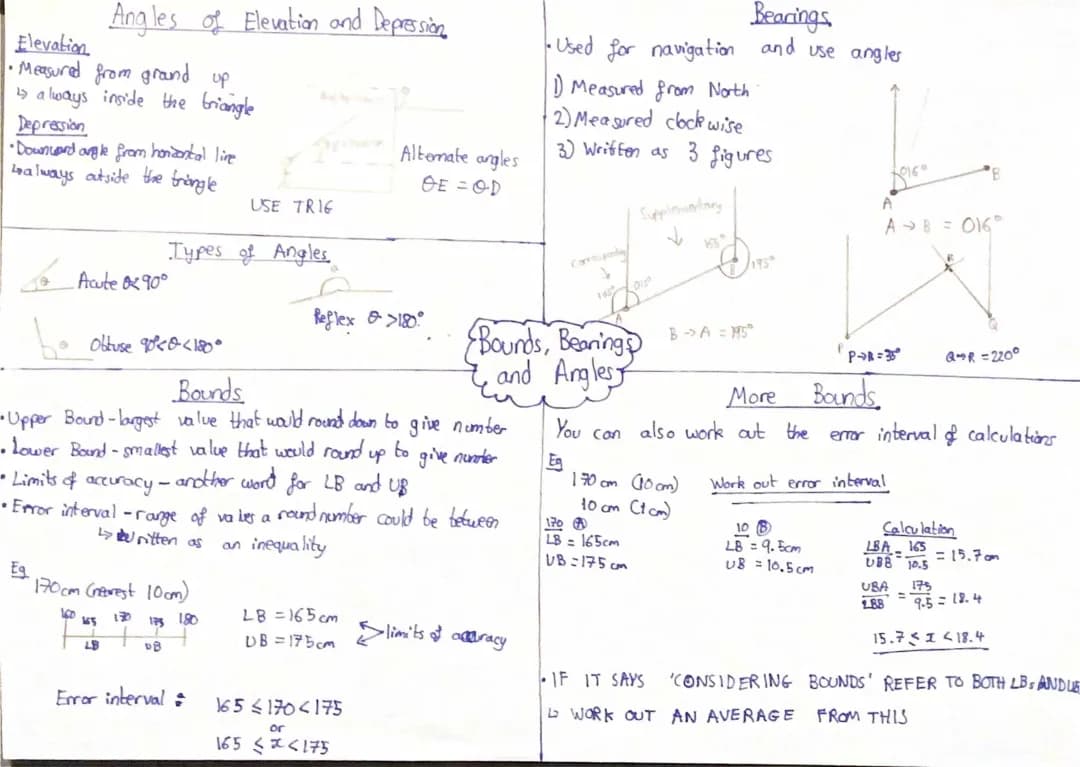 Angles of Elevation and Depression
Elevation
• Measured from grand up
↳ always inside the triangle
Depression
• Downward angle from horizontal line
↳ always outside the triangle
Alternate angles
θE = θD
USE TRIG
Bearings
• Used for navigation and use angles
1) Measured from North
2) Measured clockwise
3) Written as 3 figures
016°
B
A
A → B = 016°
Supplementary
165°
195°
B
015°
A
B → A = 195°
R
P
Q
P→R = 35°
Q→R = 220°
Types of Angles
θ
Acute θ<90°
θ
Reflex θ >180°
θ
Obtuse 90°<θ<180°
Bounds, Bearings
and Angles
Bounds
• Upper Bound - largest value that would round down to give number
• Lower Bound - smallest value that would round up to give number
• Limits of accuracy - another word for LB and UB
• Error interval - range of values a round number could be between
↳ written as an inequality
Eg
170cm (nearest 10cm)
160 165 170 175 180
LB UB
LB = 165cm
UB = 175cm
limits of accuracy
Error interval :
165 ≤ 170 < 175
or
165 ≤ x < 175
More Bounds
You can also work out the error interval of calculations
Eg
170 cm (10cm)
10 cm (1cm)
Work out error interval
170 Ⓐ
LB = 165cm
UB = 175 cm
10 Ⓑ
LB = 9.5cm
UB = 10.5cm
Calculation
LBA/UBB = 165/10.5 = 15.7cm
UBA/LBB = 175/9.5 = 18.4
15.7 ≤ x < 18.4
• IF IT SAYS 'CONSIDERING BOUNDS' REFER TO BOTH LBs AND
↳ WORK OUT AN AVERAGE FROM THIS